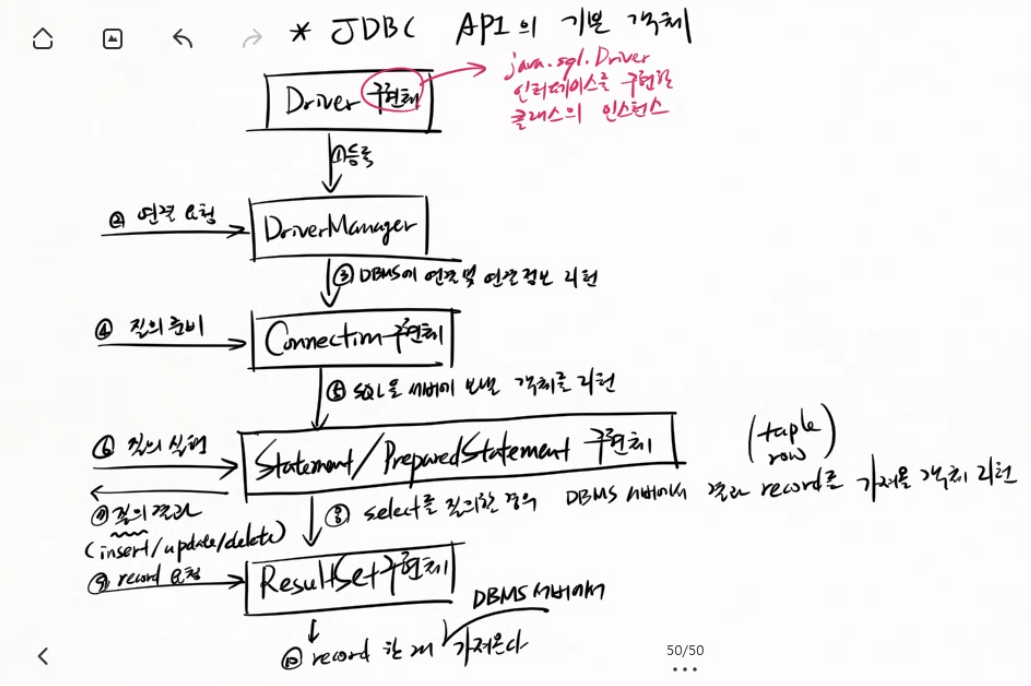 * JDBC API의 기본 객체
Driver 구현체
java.sql.Driver
인터페이스를 구현한
클래스의 인스턴스
① 등록
② 연결 요청
DriverManager
③ DBMS에 연결 및 연결정보 리턴
④ 질의 준비
Connection 구현체
⑤ SQL을 서버에 보낼 객체를 리턴
⑥ 질의 실행
Statement/PreparedStatement 구현체
(tuple
row)
⑦ 질의 결과
(insert/update/delete)
⑧ select를 질의한 경우 DBMS 서버에서 결과 record를 가져올 객체 리턴
⑨ record 요청
ResultSet 구현체
DBMS 서버에서
⑩ record 한 개 가져온다
50/50